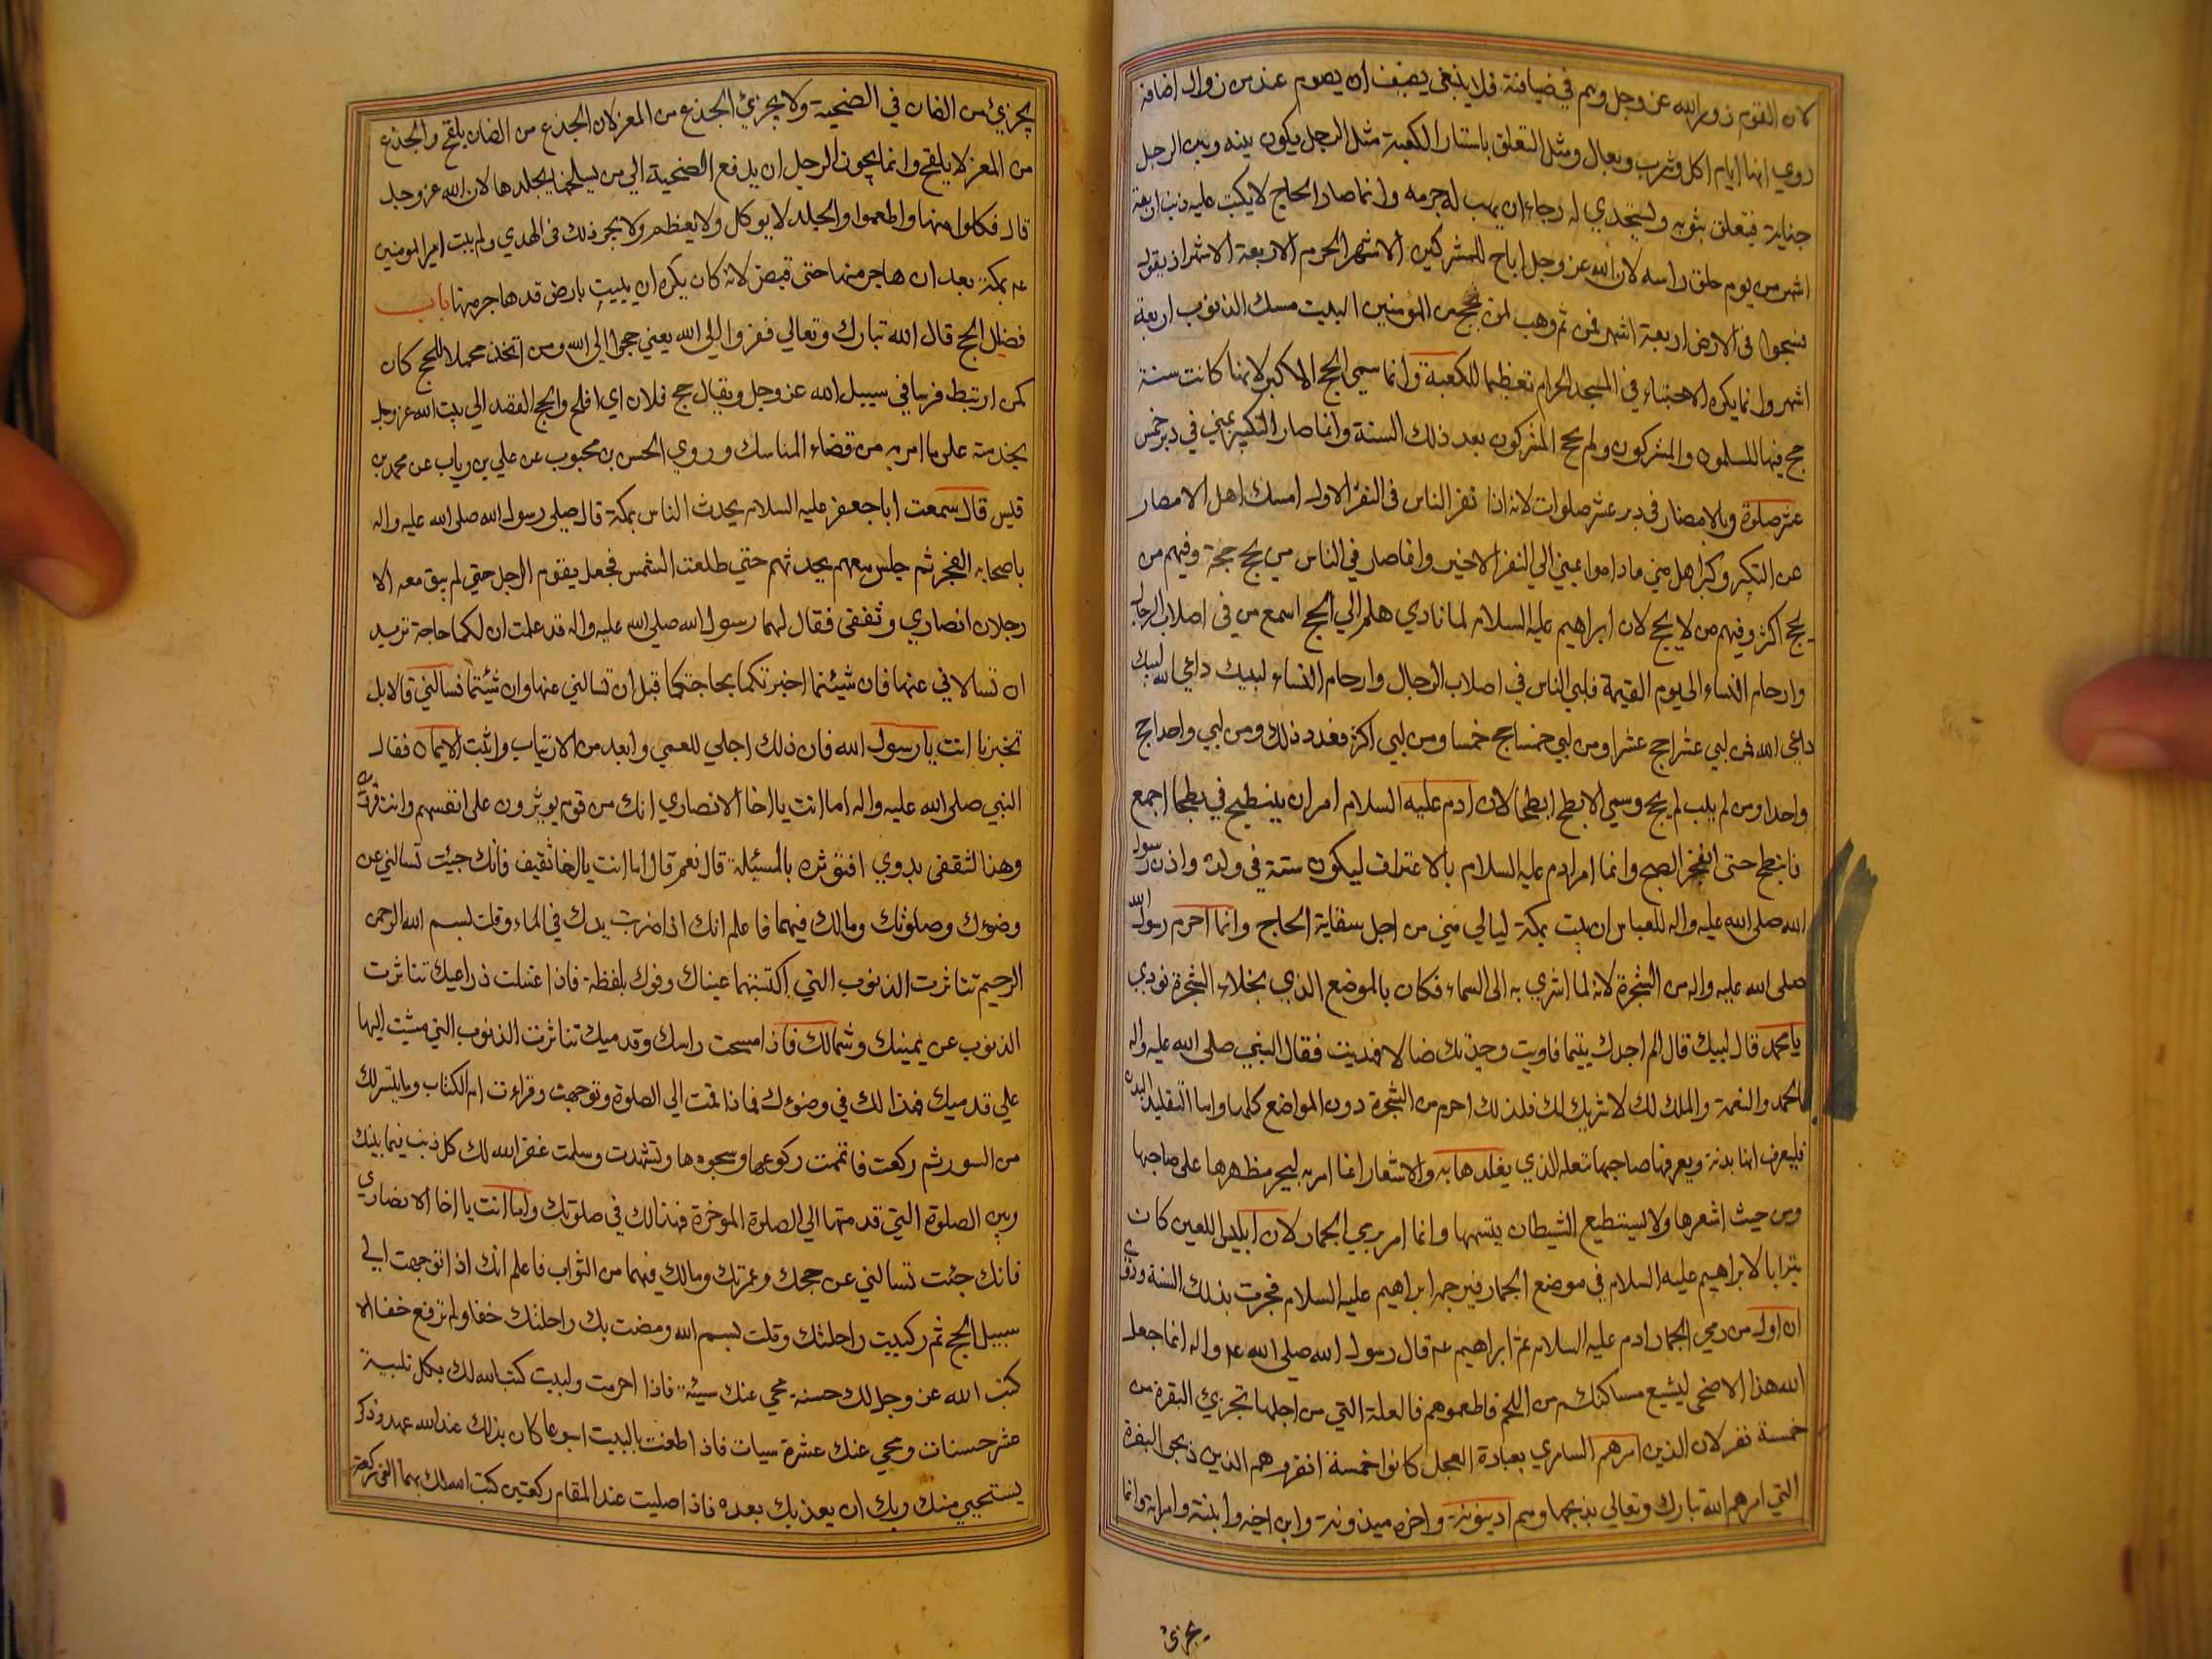 لان القوم زوار الله عز وجل وهم في ضيافته فلا ينبغي يضيف ان يصوم عند من زواله اضافه
روي انها ايام اكل وشرب وبعال ومثل التعلق باستار الكعبة مثل الرجل يكون بينه وبين الرجل
جناية فيتعلق بثوبه ويستخدي له رجاء ان يهب له جرمه وانما صار الحاج لا يكتب عليه ذنب اربعة
اشهر من يوم حلق راسه لان الله عز وجل اباح للمشركين الاشهر الحرم الاربعة الاشهر اذ يقول
فسيحوا في الارض اربعة اشهر فمن ثم وهب لمن يحج من المؤمنين البيت مسك الذنوب اربعة
اشهر وانما يكره الاحتباء في المسجد الحرام تعظيما للكعبة وانما سمي الحج الاكبر لانها كانت سنة
حج فيها المسلمون والمشركون ولم يحج المشركون بعد ذلك السنة وانما صار التكبير بمنى في دبر خمس
عشر صلوة وبالامصار في دبر عشر صلوات لانه اذا نفر الناس في النفر الاول امسك اهل الامصار
عن التكبير وكبر اهل منى ما داموا بمنى الي النفر الاخير وانما صار في الناس من يحج حجة وفيهم من
يحج اكثر وفيهم من لا يحج لان ابراهيم عليه السلام لما نادي هلم الي الحج اسمع من في اصلاب الرجال
وارحام النساء الى يوم القيمة فلبى الناس في اصلاب الرجال وارحام النساء لبيك داعي الله لبيك
داعي الله فمن لبي عشرا حج عشرا ومن لبي خمسا حج خمسا ومن لبي اكثر فعدد ذلك ومن لبي واحدا حج
واحدا ومن لم يلب لم يحج وسمي الابطح ابطحا لان ادم عليه السلام امر ان ينبطح في بطحا اجمع
فانبطح حتى انفجر الصبح وانما امر ادم عليه السلام بالاعتراف ليكون سنة في ولده واذن رسول
الله صلى الله عليه واله للعباس ان يبيت بمكة ليالي منى من اجل سقاية الحاج وانما احرم رسول الله
صلى الله عليه واله من الشجرة لانه لما اسري به الى السماء فكان بالموضع الذي بحذاء الشجرة نودي
يا محمد قال لبيك قال الم اجدك يتيما فاويت وجدتك ضالا فهديت فقال النبي صلى الله عليه واله
الحمد والنعمة والملك لك لا شريك لك فلذلك احرم من الشجرة دون المواضع كلها واما التقليد البدن
فليعرف انها بدنة ويعرفها صاحبها بنعله الذي يقلدها به والاشعار انما امر به ليحرم ظهرها على صاحبها
ومن حيث اشعرها ولا يستطيع الشيطان يتسمها وانما امر برمي الجمار لان ابليس اللعين كان
يترايا لابراهيم عليه السلام في موضع الجمار فيرجمه ابراهيم عليه السلام فجرت بذلك السنة وروي
ان اول من رمي الجمار ادم عليه السلام ثم ابراهيم عم قال رسول الله صلى الله عليه واله انما جعل
الله هذا الاضحى ليشبع مساكنكم من اللحم فاطعموهم فالعلة التي من اجلها تجزئ البقرة من
خمسة نفر لان الذين امرهم السامري بعبادة العجل كانوا خمسة انفر وهم الذين ذبحوا البقرة
التي امرهم الله تبارك وتعالي بذبحها وهم اذينونة واخوه ميذونة وابن اخيه وابنته وامراته وانما
يجزئ
يجزئ من الضان في الضحية ولا يجزئ الجذع من المعز لان الجذع من الضان يلقح والجذع
من المعز لا يلقح وانما يجوز للرجل ان يدفع الضحية الي من يسلخها بجلدها لان الله عز وجل
قال فكلوا منها واطعموا والجلد لا يوكل ولا يطعم ولا يجوز ذلك في الهدي ولم يبت امير المومنين
عم بمكة بعد ان هاجر منها حتى قبض لانه كان يكره ان يبيت بارض قد هاجر منها باب
فضائل الحج قال الله تبارك وتعالي ففروا الي الله يعني حجوا الي الله ومن اتخذ محملا للحج كان
كمن ارتبط فرسا في سبيل الله عز وجل ويقال حج فلان اي افلح والحج القصد الي بيت الله عز وجل
بخدمته على ما امر به من قضاء المناسك وروي الحسن بن محبوب عن علي بن رياب عن محمد بن
قيس قال سمعت ابا جعفر عليه السلام يحدث الناس بمكة قال صلى رسول الله صلى الله عليه واله
باصحابه الفجر ثم جلس معهم يحدثهم حتي طلعت الشمس فجعل يقوم الرجل حتي لم يبق معه الا
رجلان انصاري وثقفي فقال لهما رسول الله صلى الله عليه واله قد علمت ان لكما حاجة تريد
ان تسالاني عنها فان شيئتما اخبرتكما بحاجتكما قبل ان تسالني عنها وان شيئتما فسالني قالا بل
تخبرنا انت يا رسول الله فان ذلك اجلي للعمي وابعد من الارتياب واثبت الايمان فقال
النبي صلى الله عليه واله اما انت يا اخا الانصاري انك من قوم يوثرون على انفسهم وانت قروي
وهذا الثقفي بدوي افتوثره بالمسئلة قال نعم قال اما انت يا اخا ثقيف فانك جيئت تسالني عن
وضوءك وصلوتك ومالك فيهما فاعلم انك اذا ضربت يدك في الماء وقلت بسم الله الرحمن
الرحيم تناثرت الذنوب التي اكتسبتها عيناك وفوك بلفظة فاذا غسلت ذراعيك تناثرت
الذنوب عن يمينك وشمالك فاذا مسحت راسك وقدميك تناثرت الذنوب التي مشيت اليها
علي قدميك فهذا لك في وضوءك فاذا قمت الي الصلوة وتوجهت وقراءت ام الكتاب وما يتسر لك
من السور ثم ركعت فاتممت ركوعها وسجودها وتشهدت وسلمت غفر الله لك كل ذنب فيما بينك
وبين الصلوة التي قدمتها الي الصلوة الموخرة فهذا لك في صلوتك واما انت يا اخا الانصاري
فانك جئت تسالني عن حجك وعمرتك ومالك فيهما من الثواب فاعلم انك اذا توجهت الي
سبيل الحج ثم ركبيت راحلتك وقلت بسم الله ومضت بك راحلتك لم تضع خفا ولم ترفع خفا الا
كتب الله عز وجل لك حسنة ومحي عنك سيئة فاذا احرمت ولبيت كتب الله لك بكل تلبية
عشر حسنات ومحي عنك عشرة سيات فاذا طفت بالبيت اسبوعا كان بذلك عند الله عهد وذكر
يستحيي منك ربك ان يعذبك بعده فاذا صليت عند المقام ركعتين كتب الله لك بهما الفي ركعة